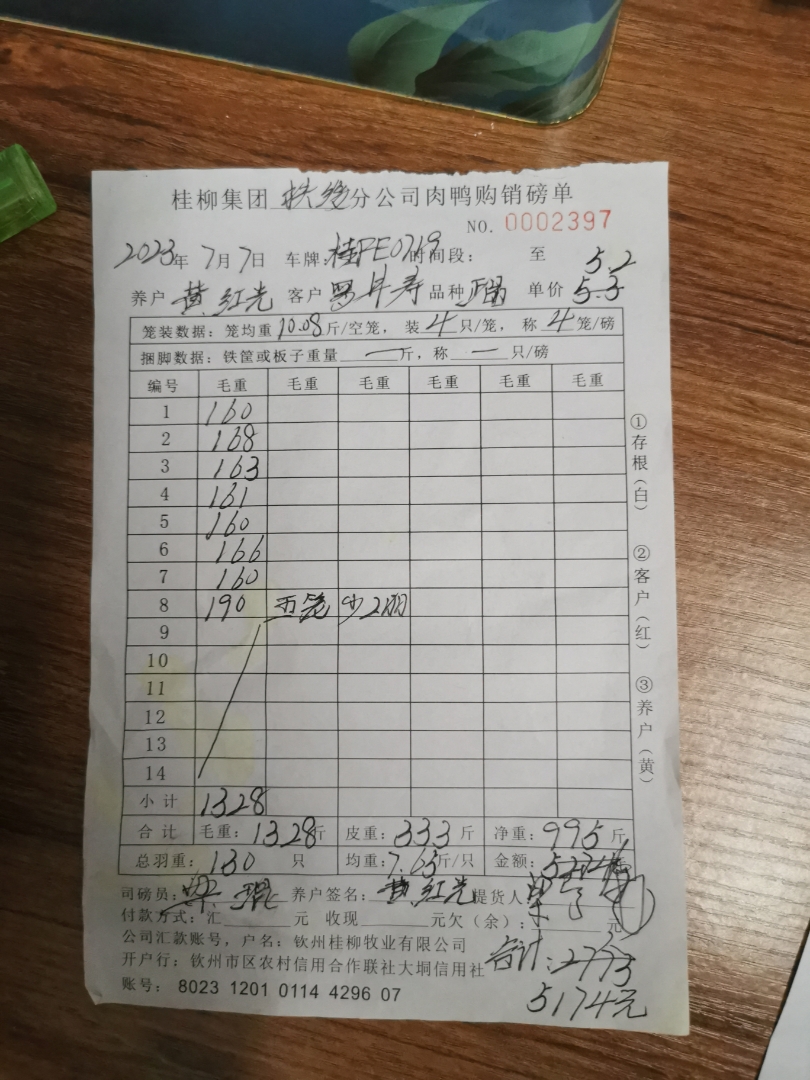 桂柳集团 扶绥 分公司肉鸭购销磅单
NO. 0002397
2023年 7月 7日 车牌: 桂PE0769 时间段: 至 5.2
养户 黄红光 客户 品种 单价 5.3
笼装数据: 笼均重 10.08 斤/空笼, 装 4 只/笼, 称 4 笼/磅
捆脚数据: 铁筐或板子重量 一 斤, 称 一 只/磅
编号 毛重 毛重 毛重 毛重 毛重 毛重
1 160
2 168
3 163
4 161
5 160
6 166
7 160
8 190 五笼 少2只
9
10
11
12
13
14
小计 1328
合计 毛重: 1328斤 皮重: 333 斤 净重: 995 斤
总羽重: 130 只 均重: 7.65斤/只 金额:
司磅员: 养户签名: 黄红光 提货人
付款方式: 汇 元 收现 元欠（余）: 元
公司汇款账号, 户名: 钦州桂柳牧业有限公司
合计:
开户行: 钦州市区农村信用合作联社大垌信用社
5174元
账号: 8023 1201 0114 4296 07
①存根（白）
②客户（红）
③养户（黄）